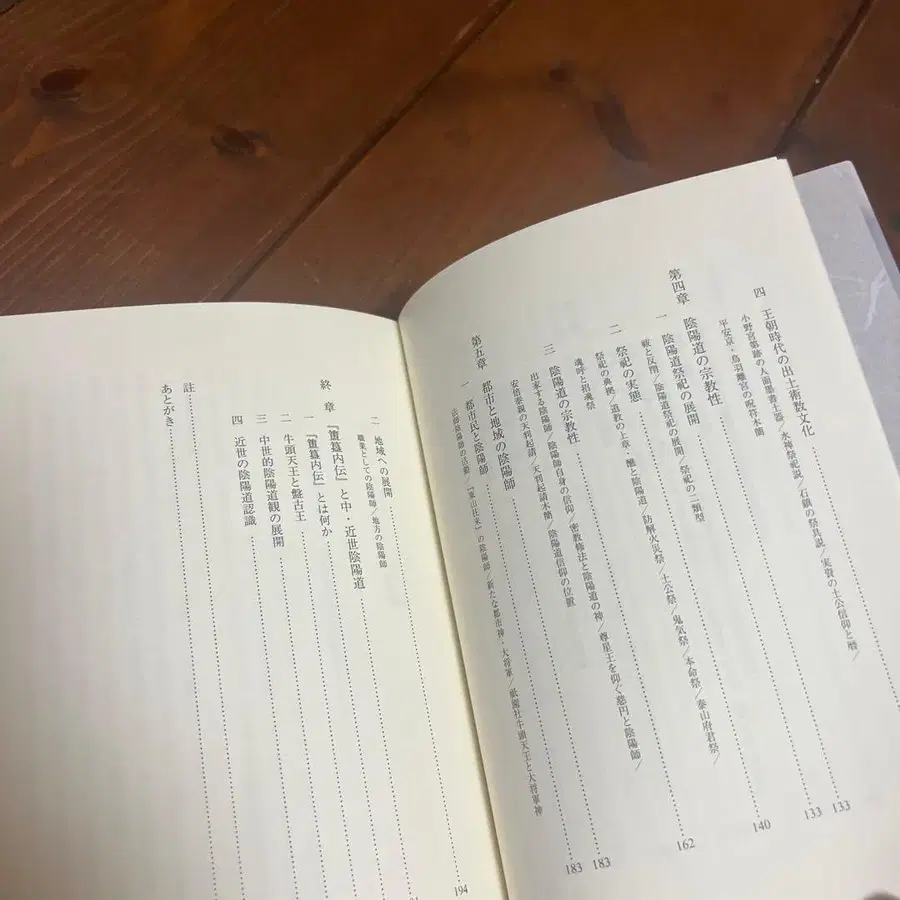 四 王朝時代の出土術数文化
小野宮第跡の人面墨書土器/水神祭祀説/石鎮の祭具説/実資の土公信仰と暦/
平安京・鳥羽離宮の呪符木簡
第四章 陰陽道の宗教性 133
一 陰陽道祭祀の展開 133
祓と反閇/陰陽道祭祀の展開/祭祀の二類型
二 祭祀の実態 140
祭祀の典拠/道教の上章・醮と陰陽道/防解火災祭/土公祭/鬼気祭/本命祭/泰山府君祭/
魂呼と招魂祭
三 陰陽道の宗教性 162
安倍泰親の天判起請/天判起請木簡/陰陽道信仰の位置
出家する陰陽師/陰陽師自身の信仰/密教修法と陰陽道の神/尊星王を仰ぐ慈円と陰陽師/
第五章 都市と地域の陰陽師 183
一 都市民と陰陽師 183
法師陰陽師の活動/『東山往来』の陰陽師/新たな都市神・大将軍/祇園社牛頭天王と大将軍神
二 地域への展開 194
職業としての陰陽師/地方の陰陽師
終章 『簠簋内伝』と中・近世陰陽道
一 『簠簋内伝』とは何か
二 牛頭天王と盤古王
三 中世的陰陽道観の展開
四 近世の陰陽道認識
註
あとがき